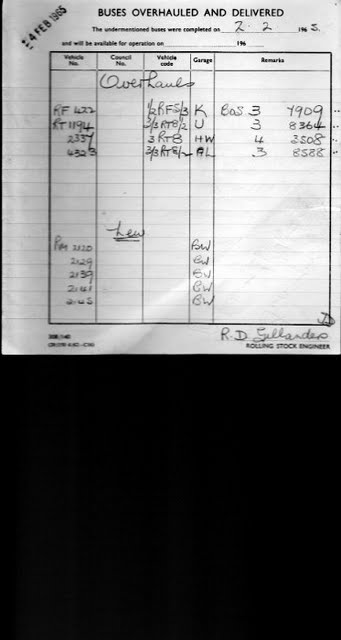 24 FEB 1965
BUSES OVERHAULED AND DELIVERED
The undermentioned buses were completed on 2 . 2 1965.
and will be available for operation on 196
Vehicle No. Council No. Vehicle code Garage Remarks
Overhauls
RF 422 1/2RF5/3 K BOS 3 7909
RT1194 3/3RT8/2 U 3 8364
2337 3RT8 HW 4 3508
4323 3/3RT8/2 AL 3 8588
New
RM 2120 BW
2129 BW
2139 BW
2141 BW
2145 BW
R.D. Gellanders
ROLLING STOCK ENGINEER